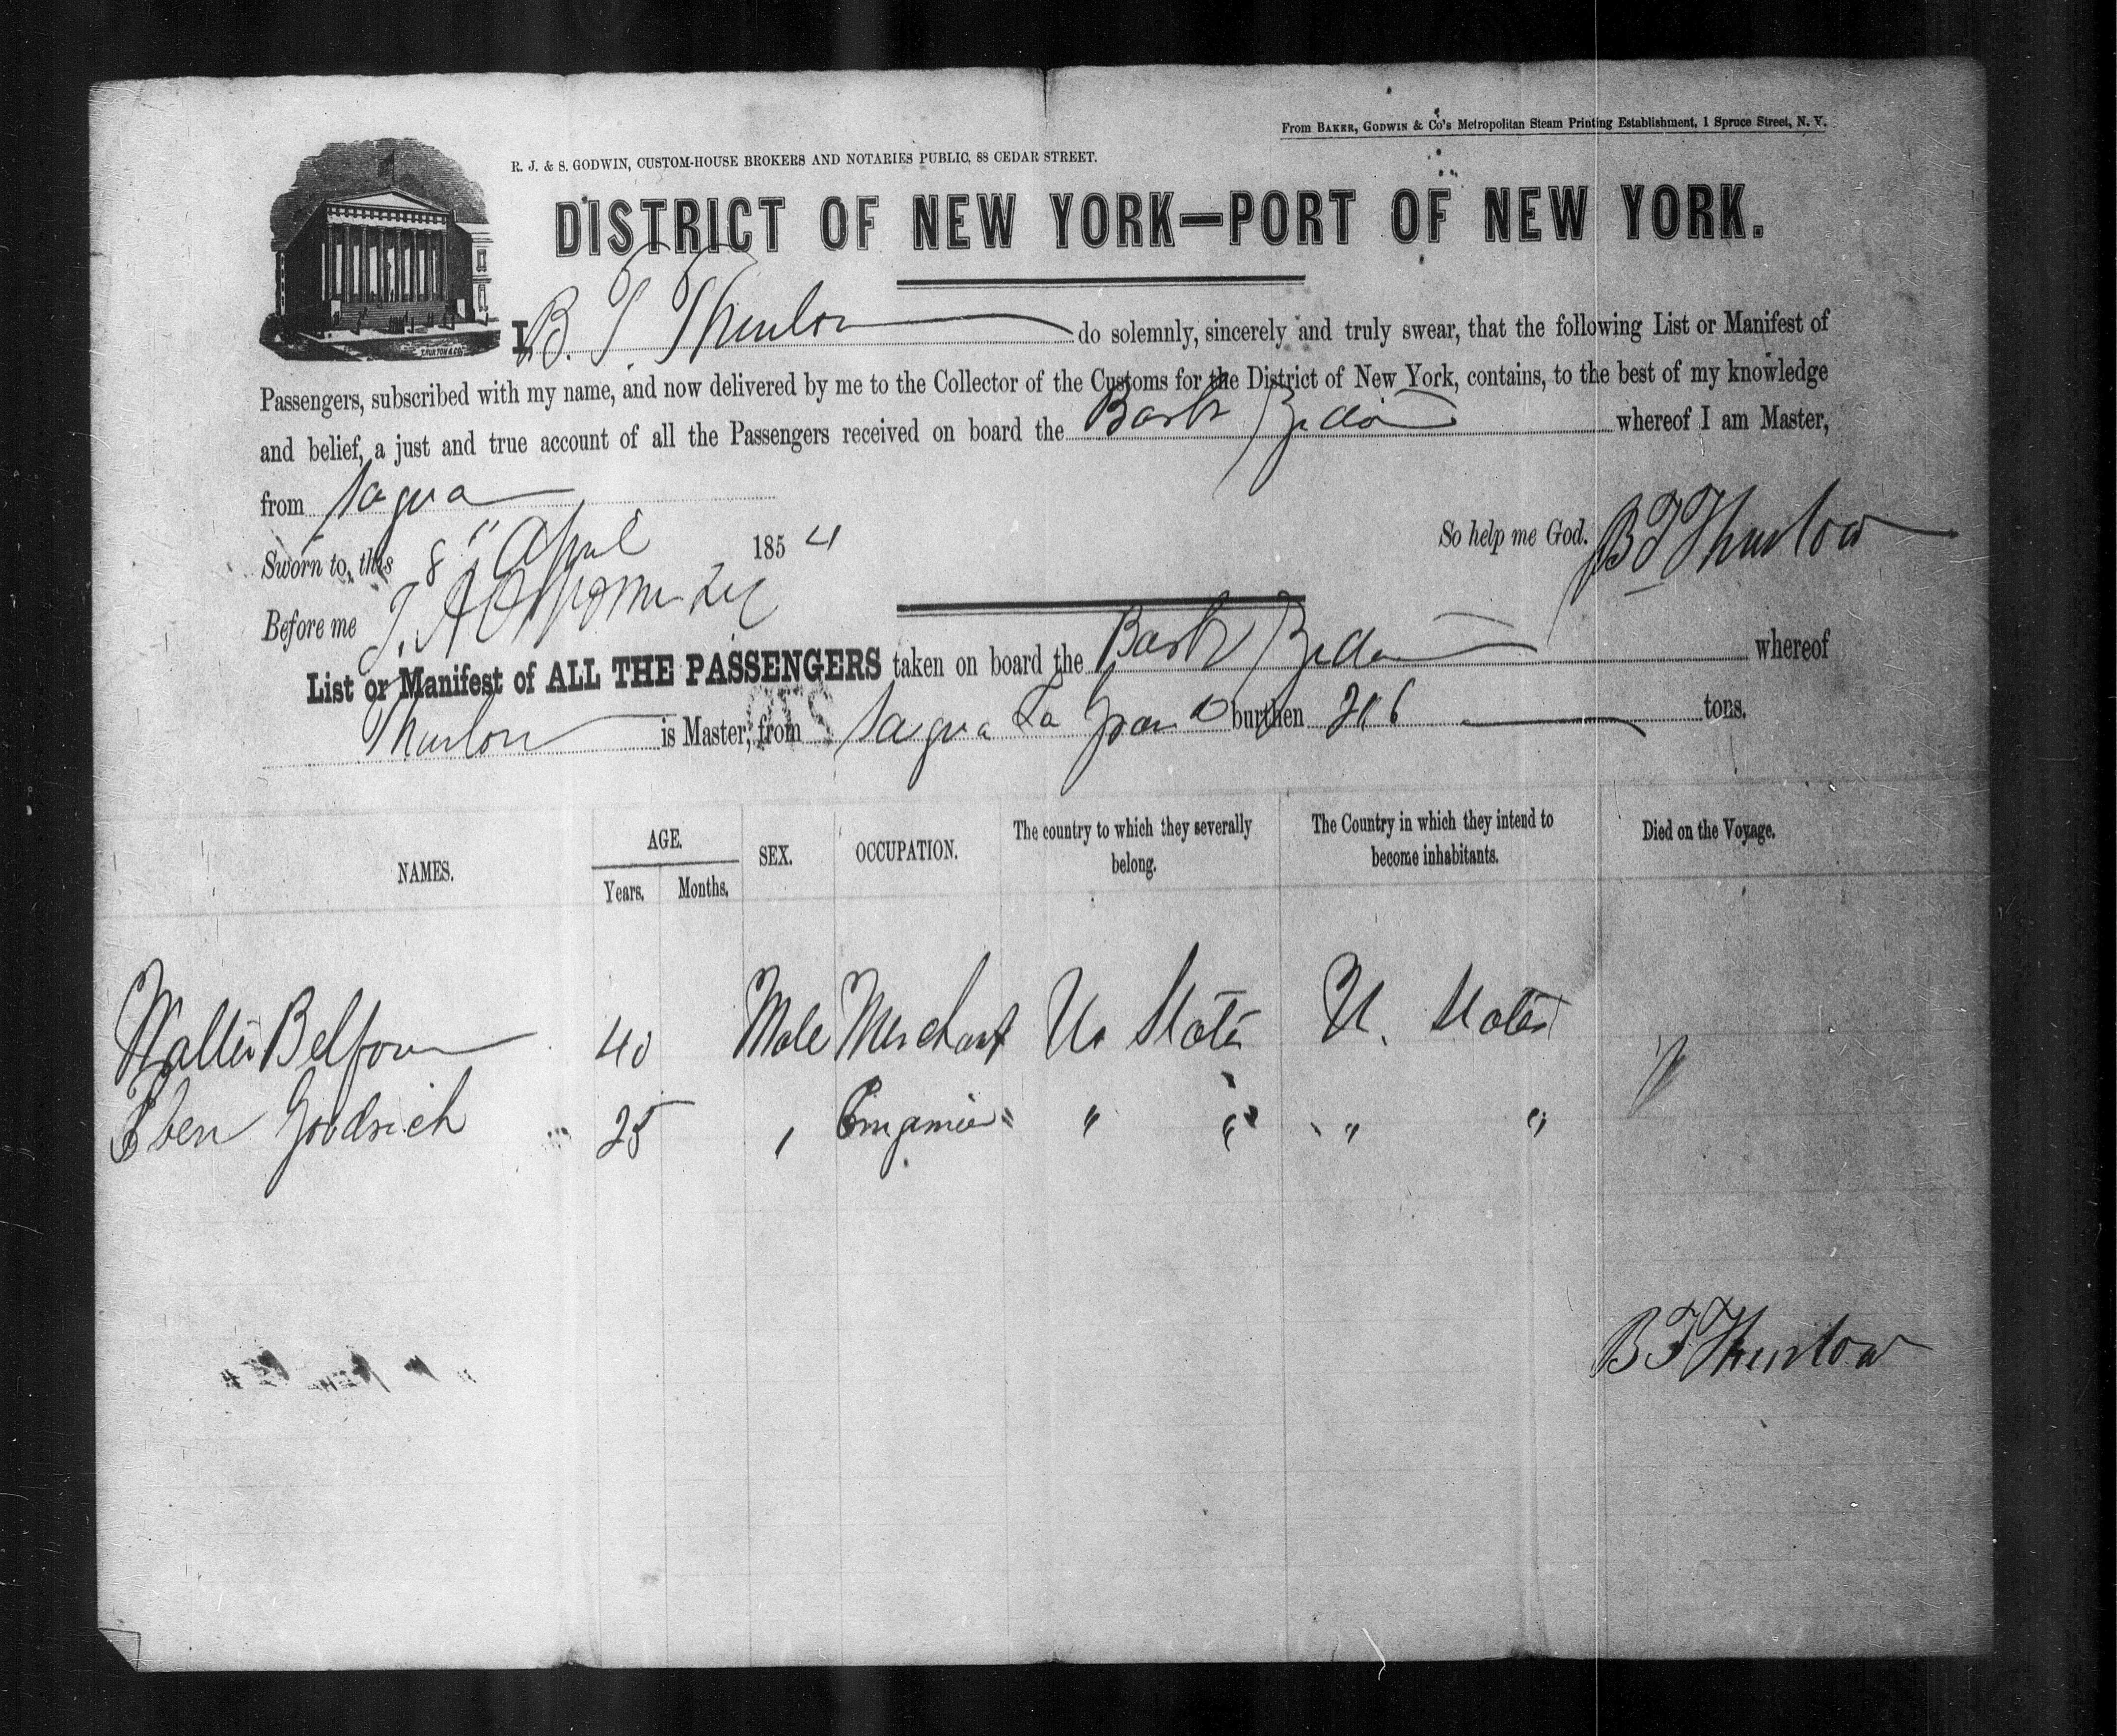 From BAKER, GODWIN & Co's Metropolitan Steam Printing Establishment, 1 Spruce Street, N. Y.
R. J. & S. GODWIN, CUSTOM-HOUSE BROKERS AND NOTARIES PUBLIC, 88 CEDAR STREET.
DISTRICT OF NEW YORK—PORT OF NEW YORK.
I, B. F. Thurlow do solemnly, sincerely and truly swear, that the following List or Manifest of
Passengers, subscribed with my name, and now delivered by me to the Collector of the Customs for the District of New York, contains, to the best of my knowledge
and belief, a just and true account of all the Passengers received on board the Bark whereof I am Master,
from Sagua
So help me God. B F Thurlow
Sworn to, this 8" April 1854
Before me
List or Manifest of ALL THE PASSENGERS taken on board the Bark whereof
Thurlow is Master, from Sagua La Grand burthen 216 tons.
NAMES. AGE. SEX. OCCUPATION. The country to which they severally belong. The Country in which they intend to become inhabitants. Died on the Voyage.
Years. Months.
Walter Belfour 40 Male Merchant U. States U. States
Eben Goodrich 25 " " " " "
B F Thurlow